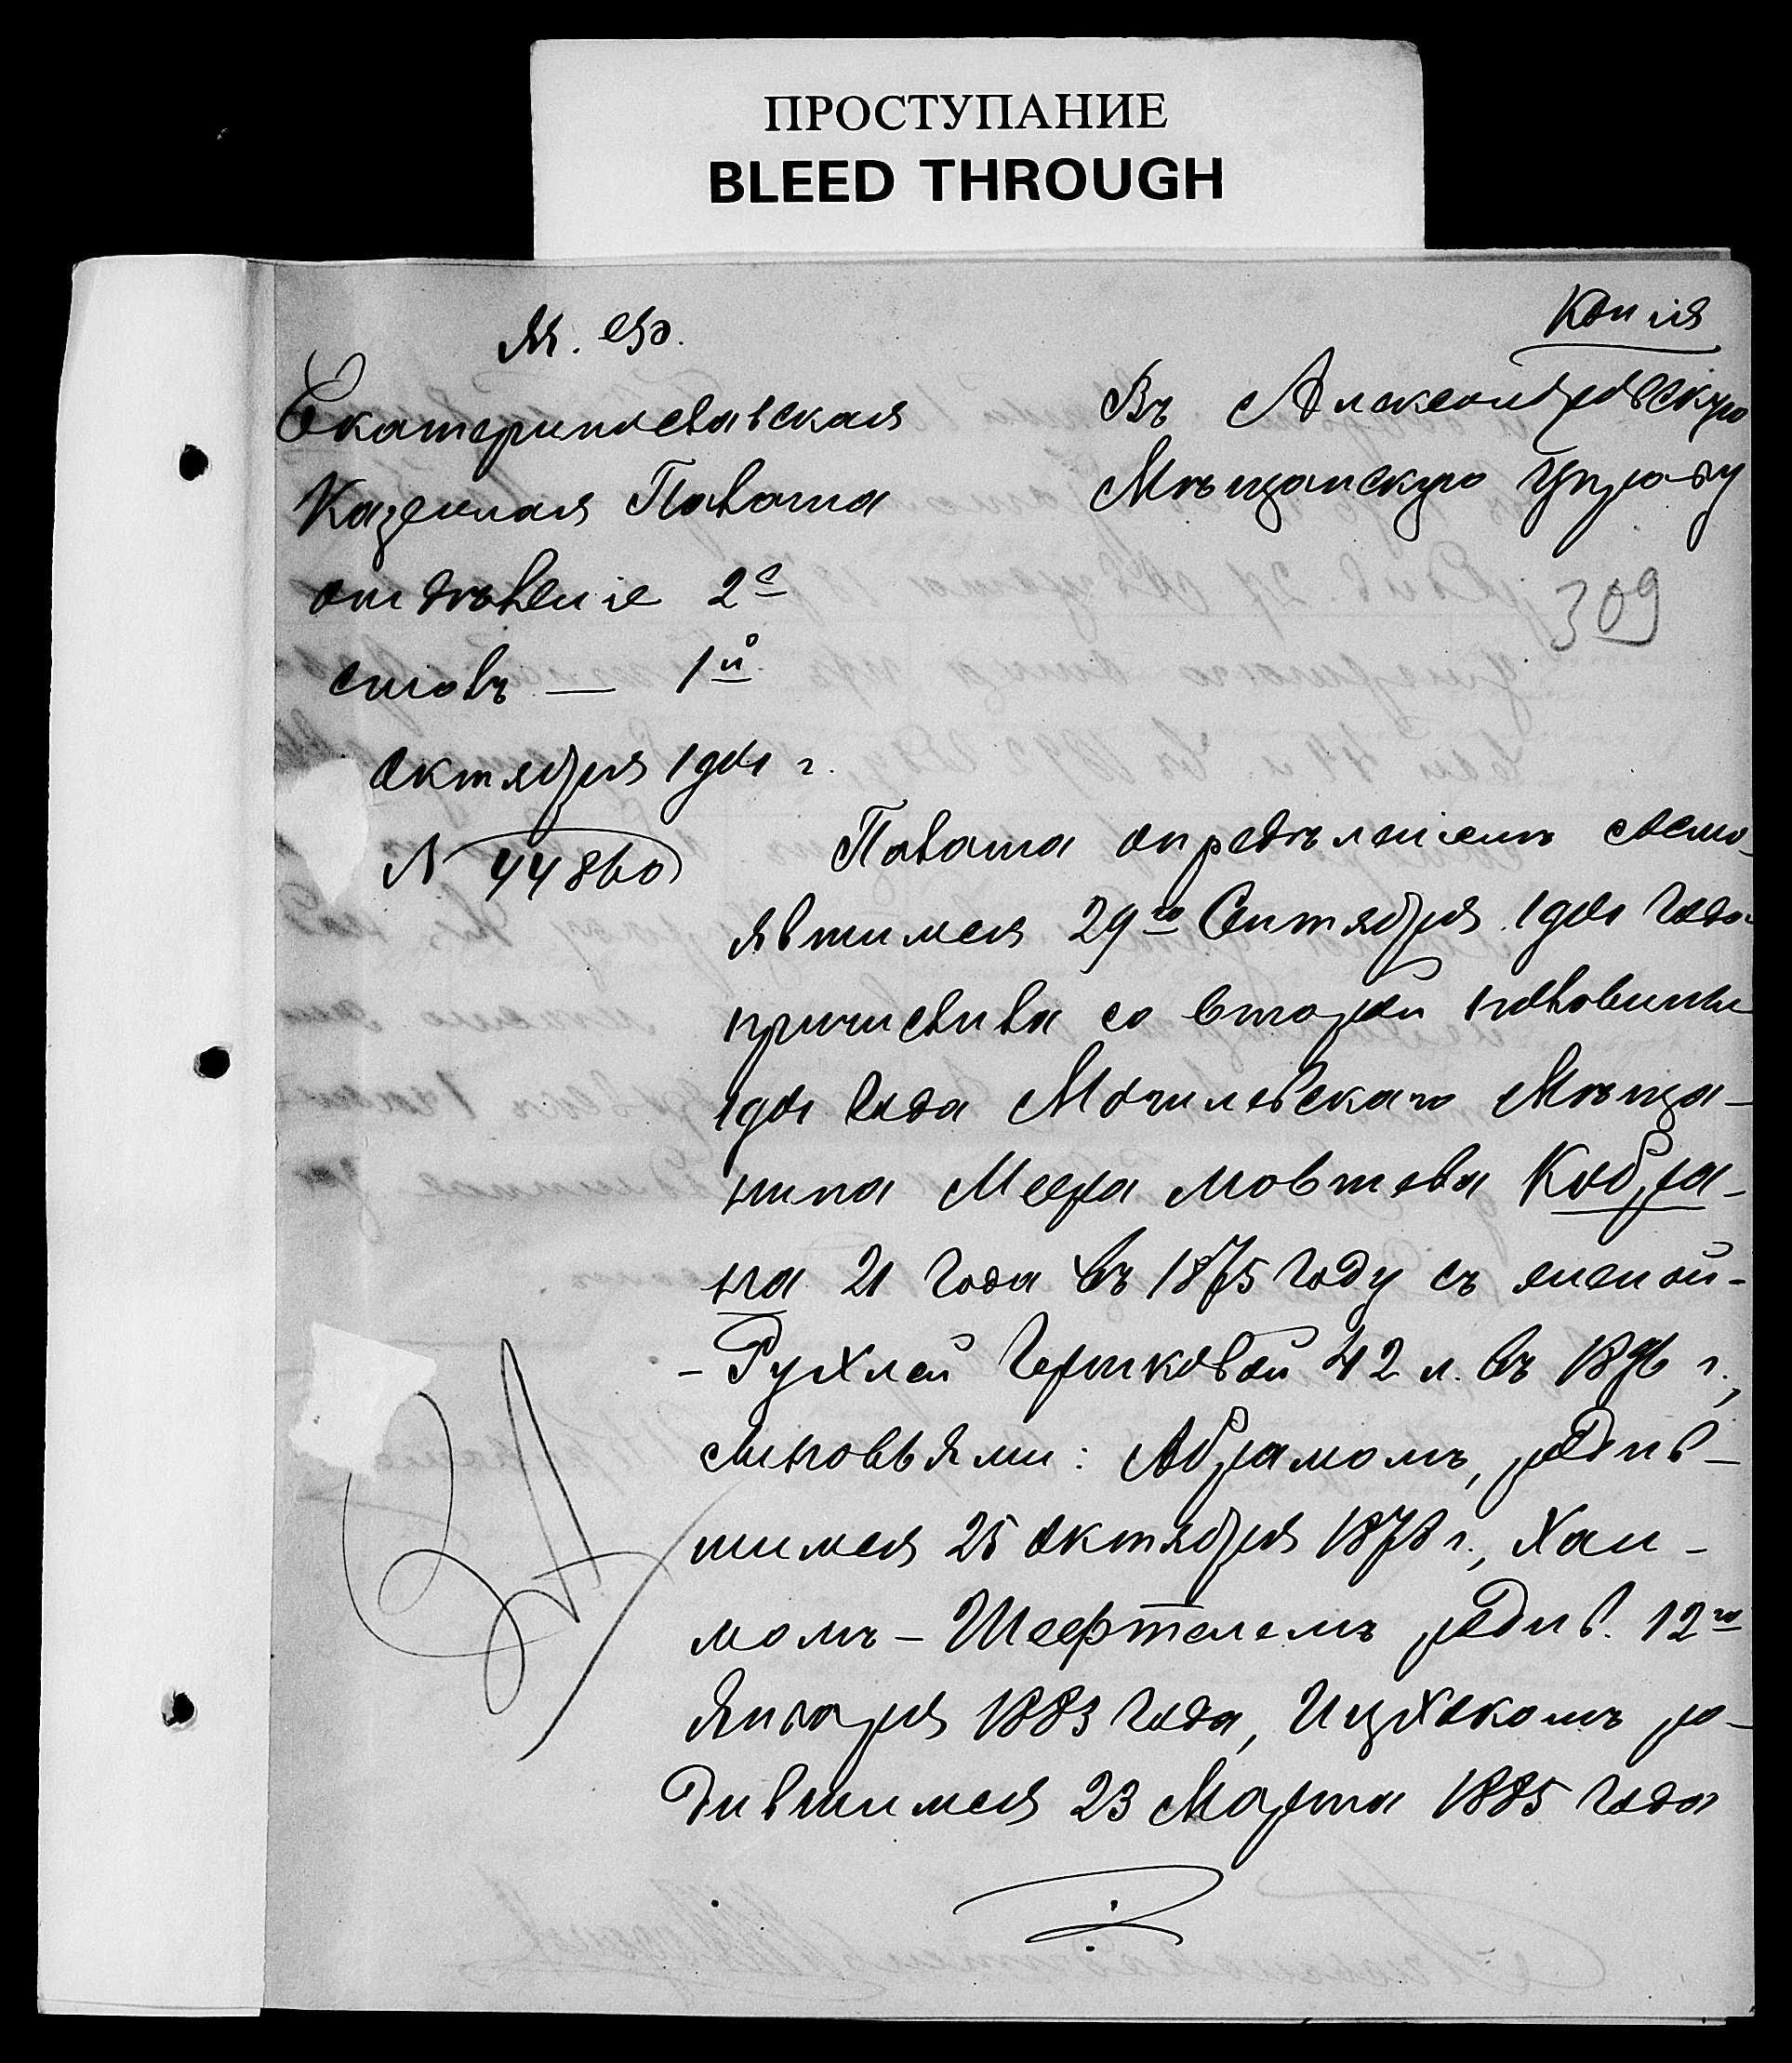 ПРОСТУПАНИЕ
BLEED THROUGH
Копія
М. Ф.
Екатеринославская
Казенная Палата
отдѣленіе 2е
столъ — 1й
Октября 1901 г.
N 44860
Въ Александровскую
Мѣщанскую Управу
309
Палата опредѣленіемъ состо-
явшимся 29го Сентября 1901 года
причислила со второй половины
1901 года Могилевскаго Мѣща-
нина Меера Мовшева Кобри-
на 21 года въ 1875 году съ женой-
- Рухлей Герцковой 42 л. въ 1896 г.,
сыновьями: Абрамомъ, родив-
шимся 25 Октября 1878 г., Хаи-
момъ - Шефтелемъ родив. 12го
Января 1883 года, Ицхокомъ ро-
дившимся 23 Марта 1885 года